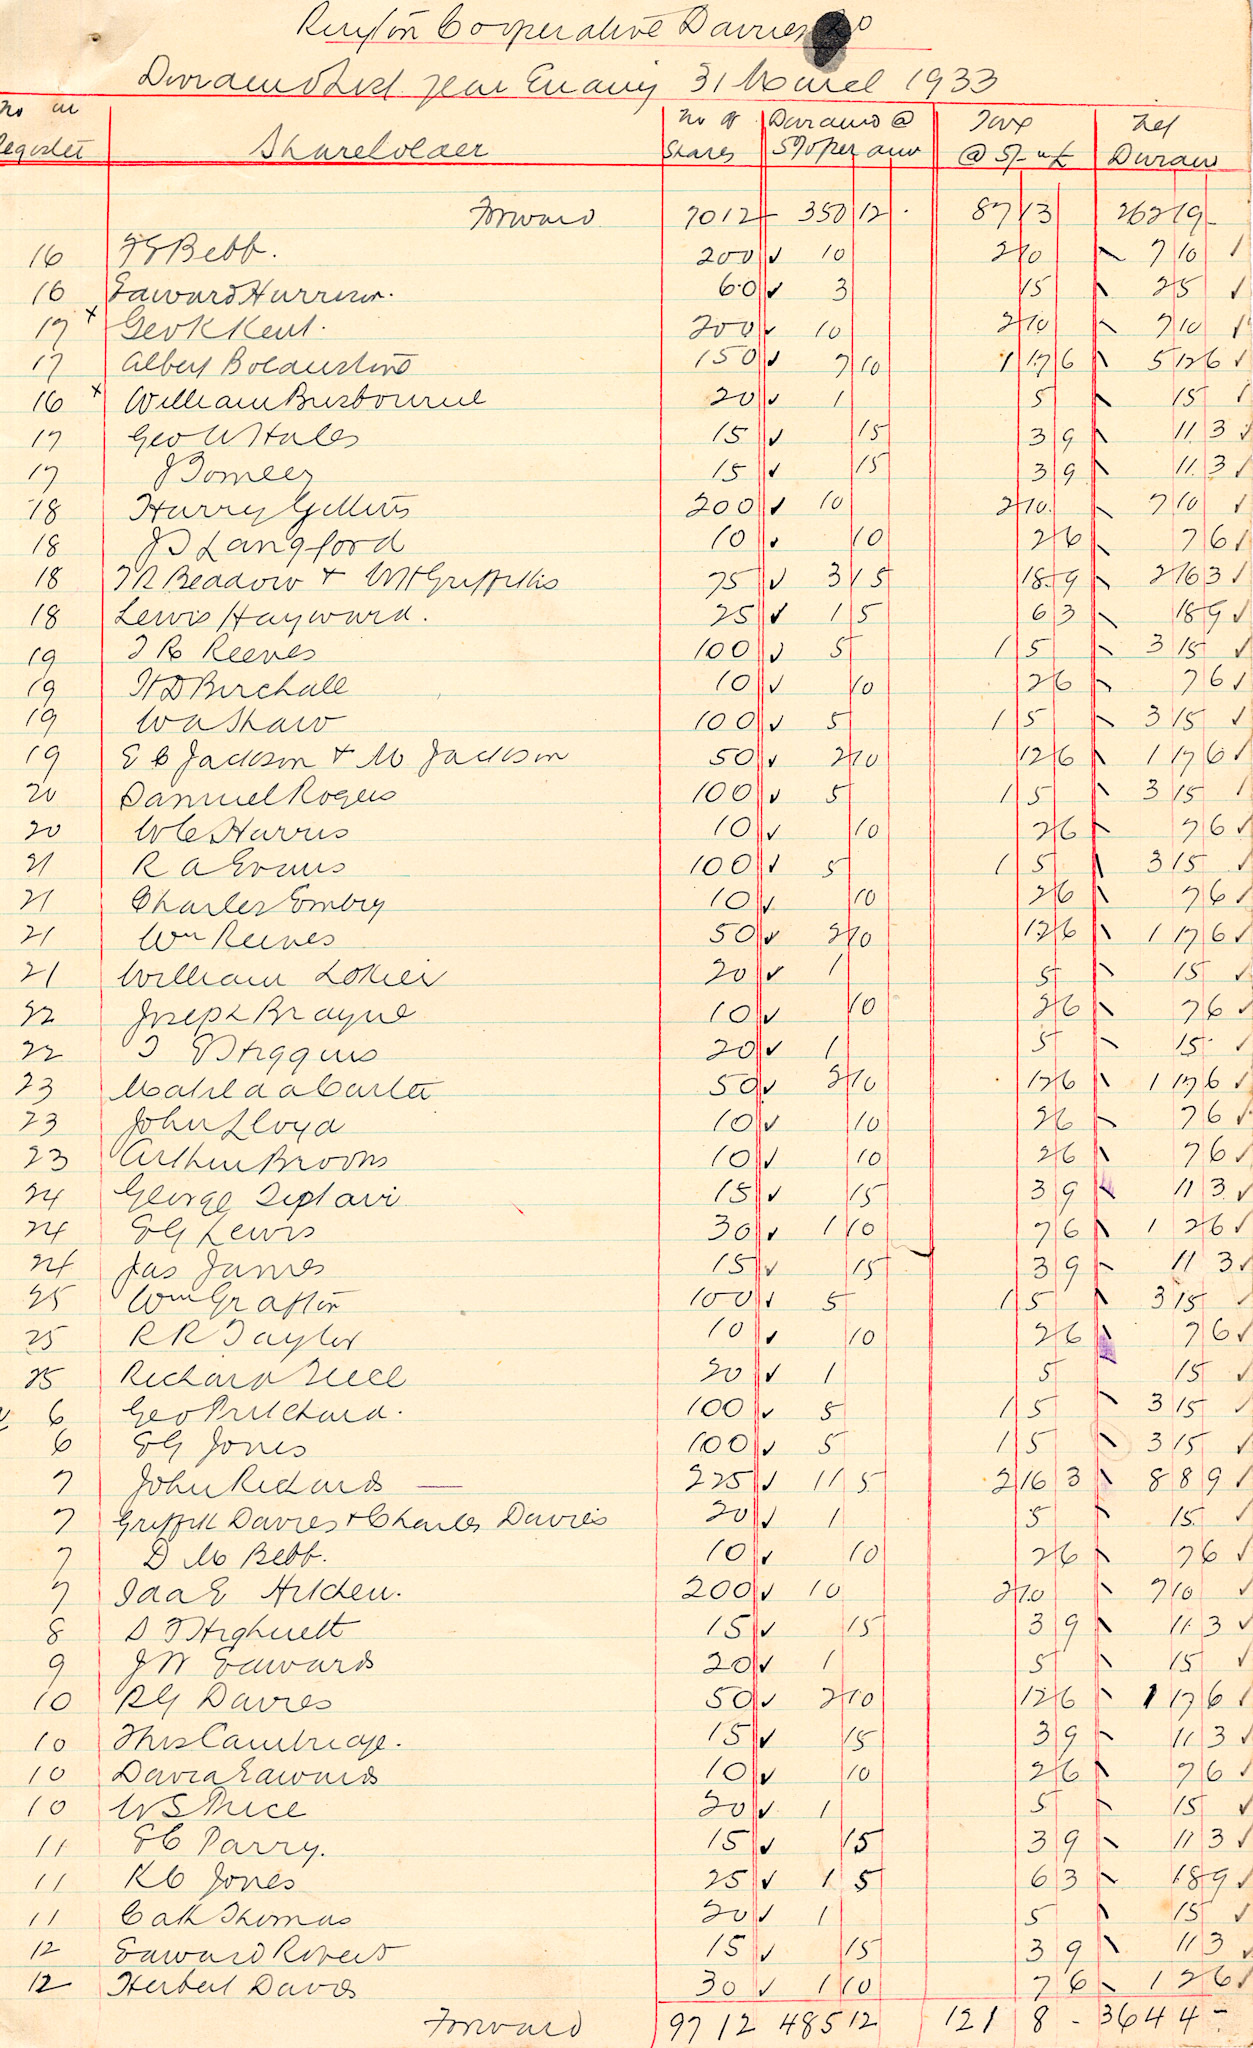 Ruyton Cooperative Dairies Ld
Dividend List year Ending 31 March 1933
No in Register Shareholder No of Shares Dividend @ 5% per ann Tax @ 5/- in £ Net Dividend
Forward 7012 350 12 - 87 13 262 19 -
16 T G Bebb. 200 10 2 10 7 10
16 Edward Hurrism. 60 3 15 2 5
17 x Geo R Kent. 200 10 2 10 7 10
17 Albert Boldustine 150 7 10 1 17 6 5 12 6
16 x William Burbourne 20 1 5 15
17 Geo W Hales 15 15 3 9 11 3
17 J Bomeer 15 15 3 9 11 3
18 Harry Gittins 200 10 2 10 7 10
18 J B Langford 10 10 2 6 7 6
18 T R Beddow & W H Griffiths 75 3 15 18 9 2 16 3
18 Lewis Hayward. 25 1 5 6 3 18 9
19 T R Reeves 100 5 1 5 3 15
19 H D Birchall 10 10 2 6 7 6
19 W A Shaw 100 5 1 5 3 15
19 E C Jackson & M Jackson 50 2 10 12 6 1 17 6
20 Samuel Rogers 100 5 1 5 3 15
20 W C Harris 10 10 2 6 7 6
21 R A Evans 100 5 1 5 3 15
21 Charles Embry 10 10 2 6 7 6
21 Wm Reeves 50 2 10 12 6 1 17 6
21 William Lokier 20 1 5 15
22 Joseph Brayne 10 10 2 6 7 6
22 T E Higgins 20 1 5 15
23 Matilda A Carter 50 2 10 12 6 1 17 6
23 John Lloyd 10 10 2 6 7 6
23 Arthur Brooks 10 10 2 6 7 6
24 George Diptavi 15 15 3 9 11 3
24 E G Lewis 30 1 10 7 6 1 2 6
24 Jas James 15 15 3 9 11 3
25 Wm Grafton 100 5 1 5 3 15
25 R R Taylor 10 10 2 6 7 6
25 Richard Teece 20 1 5 15
6 Geo Pritchard. 100 5 1 5 3 15
6 E G Jones 100 5 1 5 3 15
7 John Richards 225 11 5 2 16 3 8 8 9
7 Griffith Davies & Charles Davies 20 1 5 15
7 D M Bebb. 10 10 2 6 7 6
7 Ida E Hilden. 200 10 2 10 7 10
8 S T Hignett 15 15 3 9 11 3
9 J W Edwards 20 1 5 15
10 R G Davies 50 2 10 12 6 1 17 6
10 Thos Cambridge. 15 15 3 9 11 3
10 David Edwards 10 10 2 6 7 6
10 W S Price 20 1 5 15
11 E C Parry. 15 15 3 9 11 3
11 R C Jones 25 1 5 6 3 18 9
11 Cath Thomas 20 1 5 15
12 Edward Roberts 15 15 3 9 11 3
12 Herbert Davis 30 1 10 7 6 1 2 6
Forward 9712 485 12 121 8 - 364 4 -